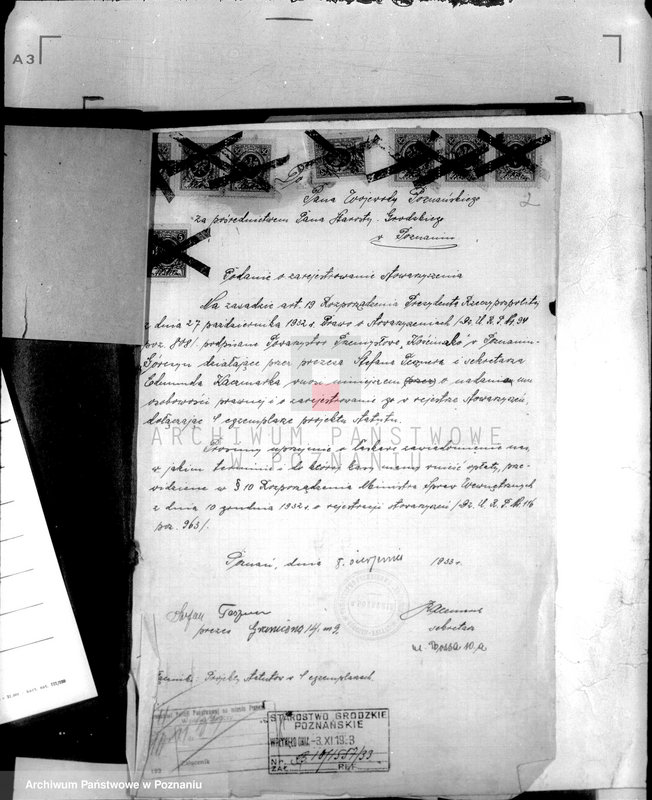 A3
2
Pana Wojewody Poznańskiego
za pośrednictwem Pana Starosty Grodzkiego
w Poznaniu
Podanie o zarejestrowanie stowarzyszenia
Na zasadzie art. 19 Rozporządzenia Prezydenta Rzeczypospolitej
z dnia 27 października 1932 r. Prawo o Stowarzyszeniach /Dz. U. R. P. Nr. 94
poz. 808/ podpisane Towarzystwo Przemysłowe w Poznaniu-
Górczyn działające przez prezesa Stefana i sekretarza
Edmunda Kaczmarka wnosi niniejszem o nadanie mu
osobowości prawnej i o zarejestrowanie go w rejestrze stowarzyszeń,
dołączając 4 egzemplarze projektu statutu.
Prosimy uprzejmie o łaskawe zawiadomienie nas,
w jakim terminie i do której kasy mamy uiścić opłaty, prze-
widziane w § 10 Rozporządzenia Ministra Spraw Wewnętrznych
z dnia 10 grudnia 1932 r. o rejestracji stowarzyszeń /Dz. U. R. P. Nr. 116
poz. 963/.
Poznań, dnia 8. sierpnia 1933 r.
Stefan
prezes Graniczna 14/ m 9.
sekretarz
ul. Bossa 10a
Projekty statutów w 4 egzemplarzach.
STAROSTWO GRODZKIE
POZNAŃSKIE
-3. XI 1933
Nr.
ZAŁ.
ARCHIWUM PAŃSTWOWE
W POZNANIU
Archiwum Państwowe w Poznaniu